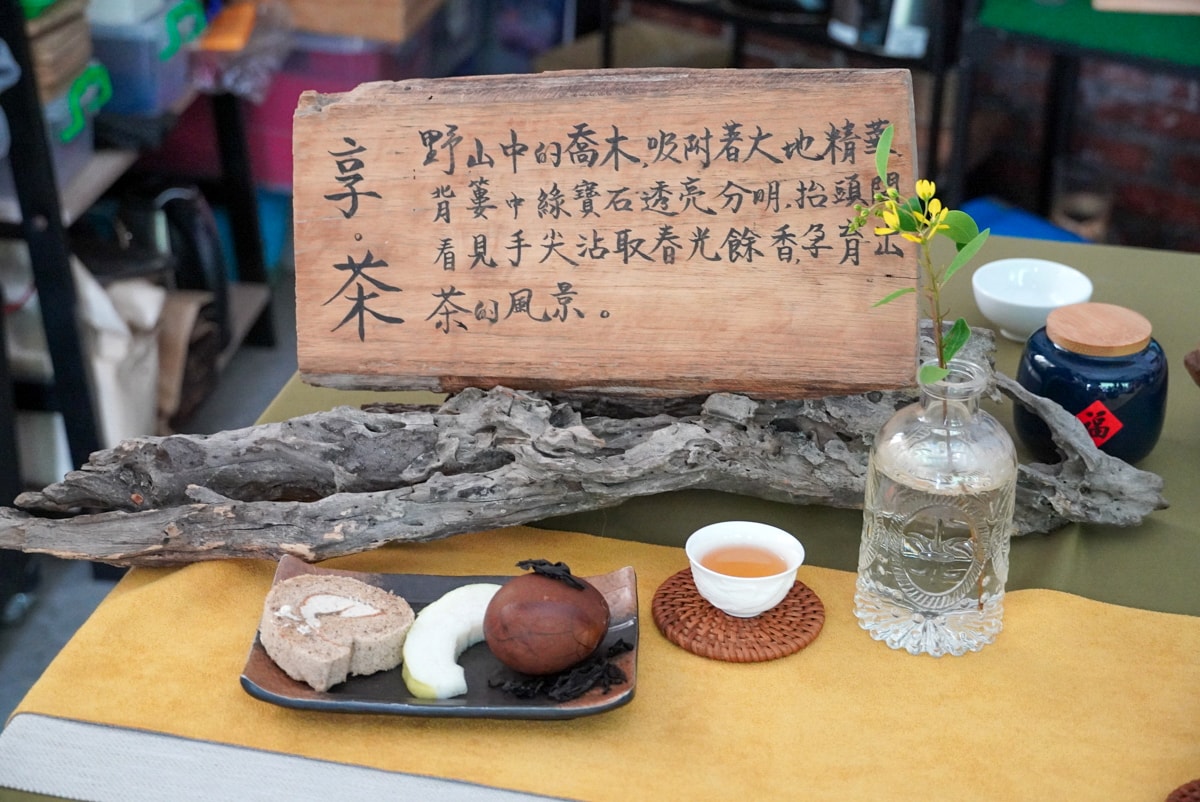 享。茶
野山中的喬木,吸附著大地精華
背簍中綠寶石透亮分明,抬頭間
看見手尖沾取春光餘香,孕育山
茶的風景。
福